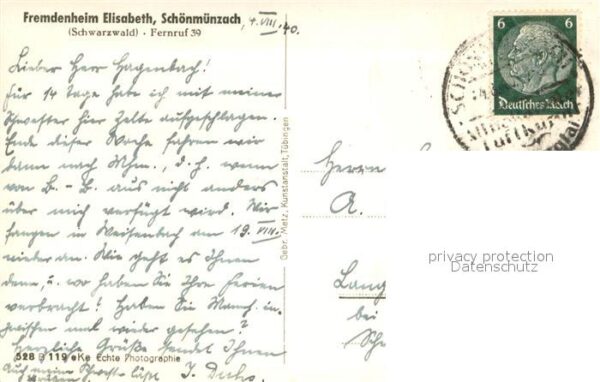 Fremdenheim Elisabeth, Schönmünzach
(Schwarzwald) - Fernruf 39
4. VIII. 40.
Lieber Herr Hagenbach!
Für 14 Tage habe ich mit meiner
Schwester hier Zelte aufgeschlagen.
Ende dieser Woche fahren wir
dann nach Mhm., d. h. wenn
von B. - B. aus nicht anders
über mich verfügt wird. Wir
fangen in Weisenbach am 19. VIII.
wieder an. Wie geht es Ihnen
denn, u. wo haben Sie Ihre Ferien
verbracht? Haben Sie Mansch. in-
zwischen mal wieder gesehen?
Herzliche Grüße sendet Ihnen
Auch meine Schwest. läßt
grüßen!
528 B 119 eKe Echte Photographie
Gebr. Metz, Kunstanstalt, Tübingen
6 6
Deutsches Reich
Luftkurort
Herrn
A.
Lang
bei
privacy protection
Datenschutz